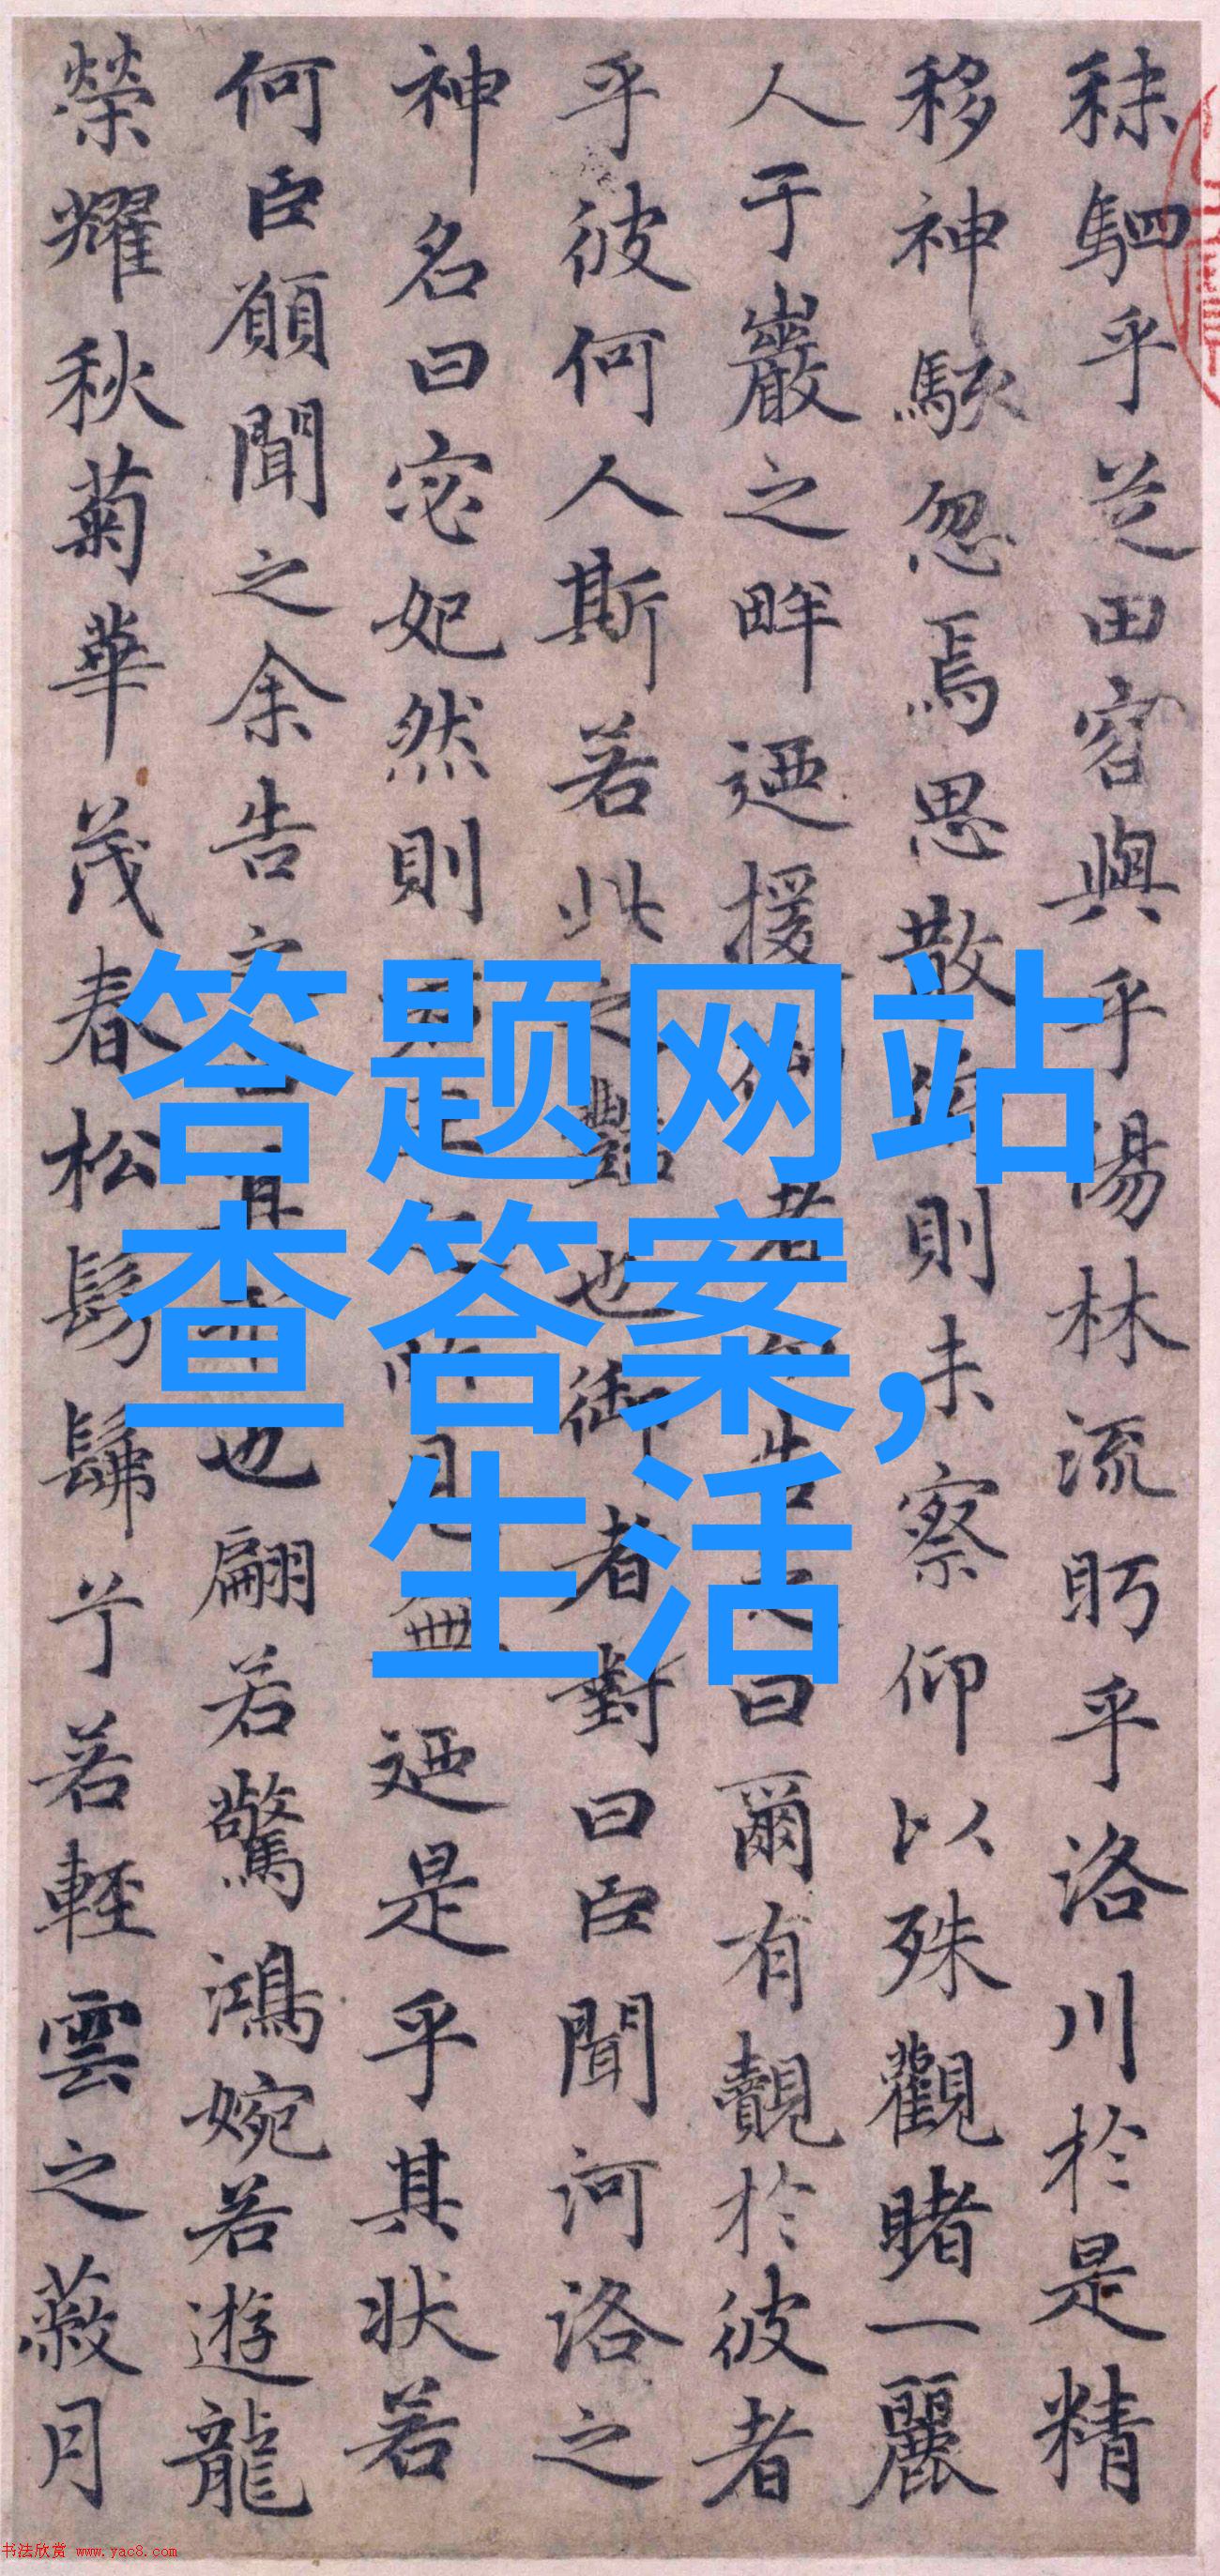 秣駟乎芝田容與乎陽林流眄乎洛川於是精
移神駭忽焉思散俯則未察仰以殊觀睹一麗
人于巖之畔迺援御者而告之曰爾有覿於彼者
乎彼何人斯若此之豔也御者對曰臣聞河洛之
神名曰宓妃然則君王之所見無迺是乎其狀若
何臣願聞之余告之曰其形也翩若驚鴻婉若遊龍
榮耀秋菊華茂春松髣髴兮若輕雲之蔽月
答题网站
查答案,
生活
书法欣赏 www.yac8.com